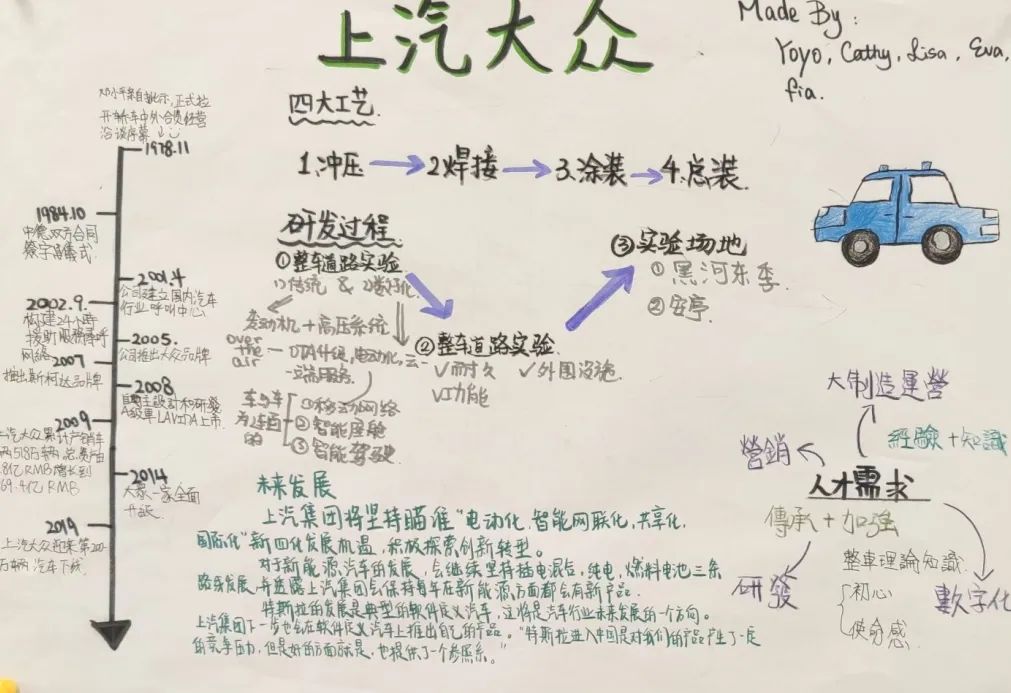 上汽大众
Made By:
Yoyo, Cathy, Lisa, Eva,
fia.
邓小平亲自批示,正式拉
开轿车中外合资经营
洽谈序幕
1978.11
1984.10
中德双方合同
簽字儀式
2001.4
公司建立国内汽车
行业呼叫中心
2002.9.
构建24小時
援助服務尋呼
网络
2005.
公司推出大众品牌
2007
推出斯柯达品牌
2008
自主設計和研發
A級車LAVIDA上市
2009
上汽大众累计产销车
辆518万辆,总资产由
9.8亿RMB增长到
69.4亿RMB
2014
大眾一家全面
升級
2019
上汽大众迎来第200
万辆汽车下线
四大工艺
1.冲压
2.焊接
3.涂装
4.总装
研发过程
①整车道路实验
1)传统 & 2)数字化
发动机+高压系统
over
the
air
OTA升级,电动化,云
云端服务.
车与车
为连通
的
①移动网络
②智能座舱
③智能驾驶
②整车道路实验
√耐久 √外围设施
√功能
③实验场地
①黑河冬季
②安亭
未来发展
上汽集团将坚持瞄准“电动化,智能网联化,共享化,
国际化”新四化发展机遇,积极探索创新转型。
对于新能源汽车的发展,会继续坚持插电混合,纯电,燃料电池三条
路线发展,并透露上汽集团会保持每年在新能源方面都会有新产品.
特斯拉的发展是典型的软件定义汽车,这将是汽车行业未来发展的一个方向。
上汽集团下一步也会在软件定义汽车上推出自己的产品。“特斯拉进入中国是对我们的产品产生了一定
的竞争压力,但是好的方面就是,也提供了一个参照系。”
大制造運營
營銷
經驗+知識
人才需求
傳承+加強
整車理論知識
初心
使命感
研發
數字化